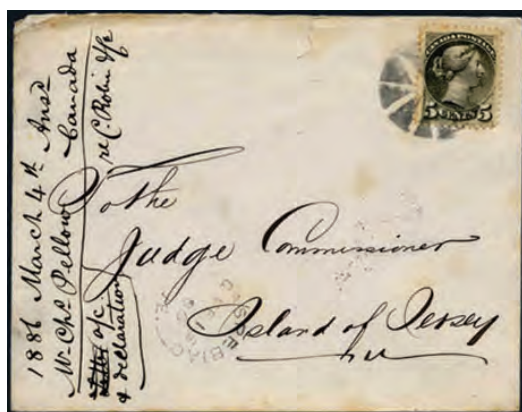 1886 March 4th Ansd
Mr Chs Pellow Canada
a/c re C. Robin
& declaration
CANADA POSTAGE
5 CENTS 5
To the
Judge Commissioner
Island of Jersey